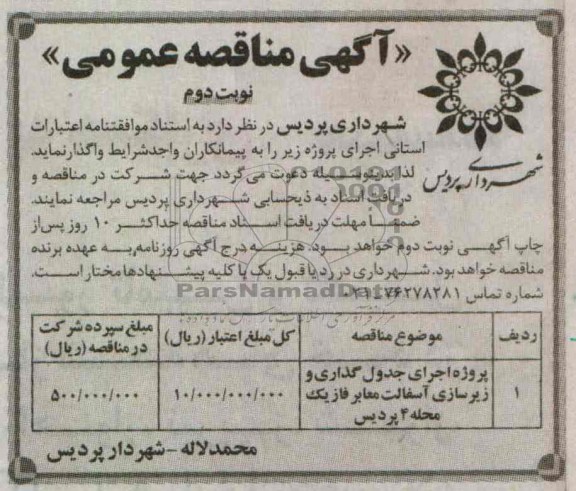 «آگهی مناقصه عمومی»
نوبت دوم
شهرداری پردیس
شهرداری پردیس در نظر دارد به استناد موافقتنامه اعتبارات
استانی اجرای پروژه زیر را به پیمانکاران واجدشرایط واگذارنماید.
لذا بدینوسیله دعوت می گردد جهت شرکت در مناقصه و
دریافت اسناد به ذیحسابی شهرداری پردیس مراجعه نمایند.
ضمناً مهلت دریافت اسناد مناقصه حداکثر ۱۰ روز پس از
چاپ آگهی نوبت دوم خواهد بود. هزینه درج آگهی روزنامه به عهده برنده
مناقصه خواهد بود. شهرداری در رد یا قبول یک یا کلیه پیشنهادها مختار است.
شماره تماس ۰۲۱۷۶۲۷۸۲۸۱
ParsNamadData
ردیف موضوع مناقصه کل مبلغ اعتبار (ریال) مبلغ سپرده شرکت
در مناقصه (ریال)
۱ پروژه اجرای جدول گذاری و
زیرسازی آسفالت معابر فاز یک
محله ۴ پردیس
۱۰/۰۰۰/۰۰۰/۰۰۰ ۵۰۰/۰۰۰/۰۰۰
محمدلاله - شهردار پردیس